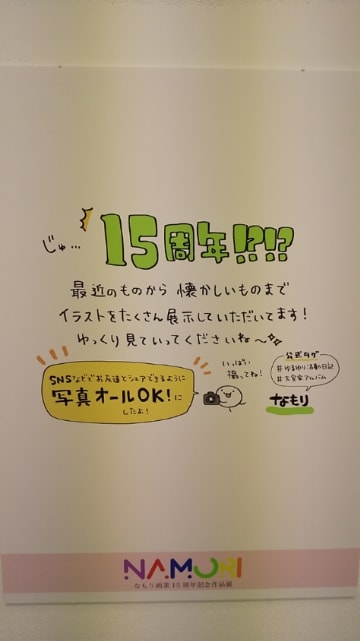 じゅ…
15周年!?!?
最近のものから 懐かしいものまで
イラストをたくさん展示していただいてます!
ゆっくり見ていってくださいね〜
SNSなどでお友達とシェアできるように
写真オールOK!に
したよ!
いっぱい
撮ってね!
公式タグ
#ゆるゆり活動日記
#大室家アルバム
なもり
NAMORI
なもり画業15周年記念作品展